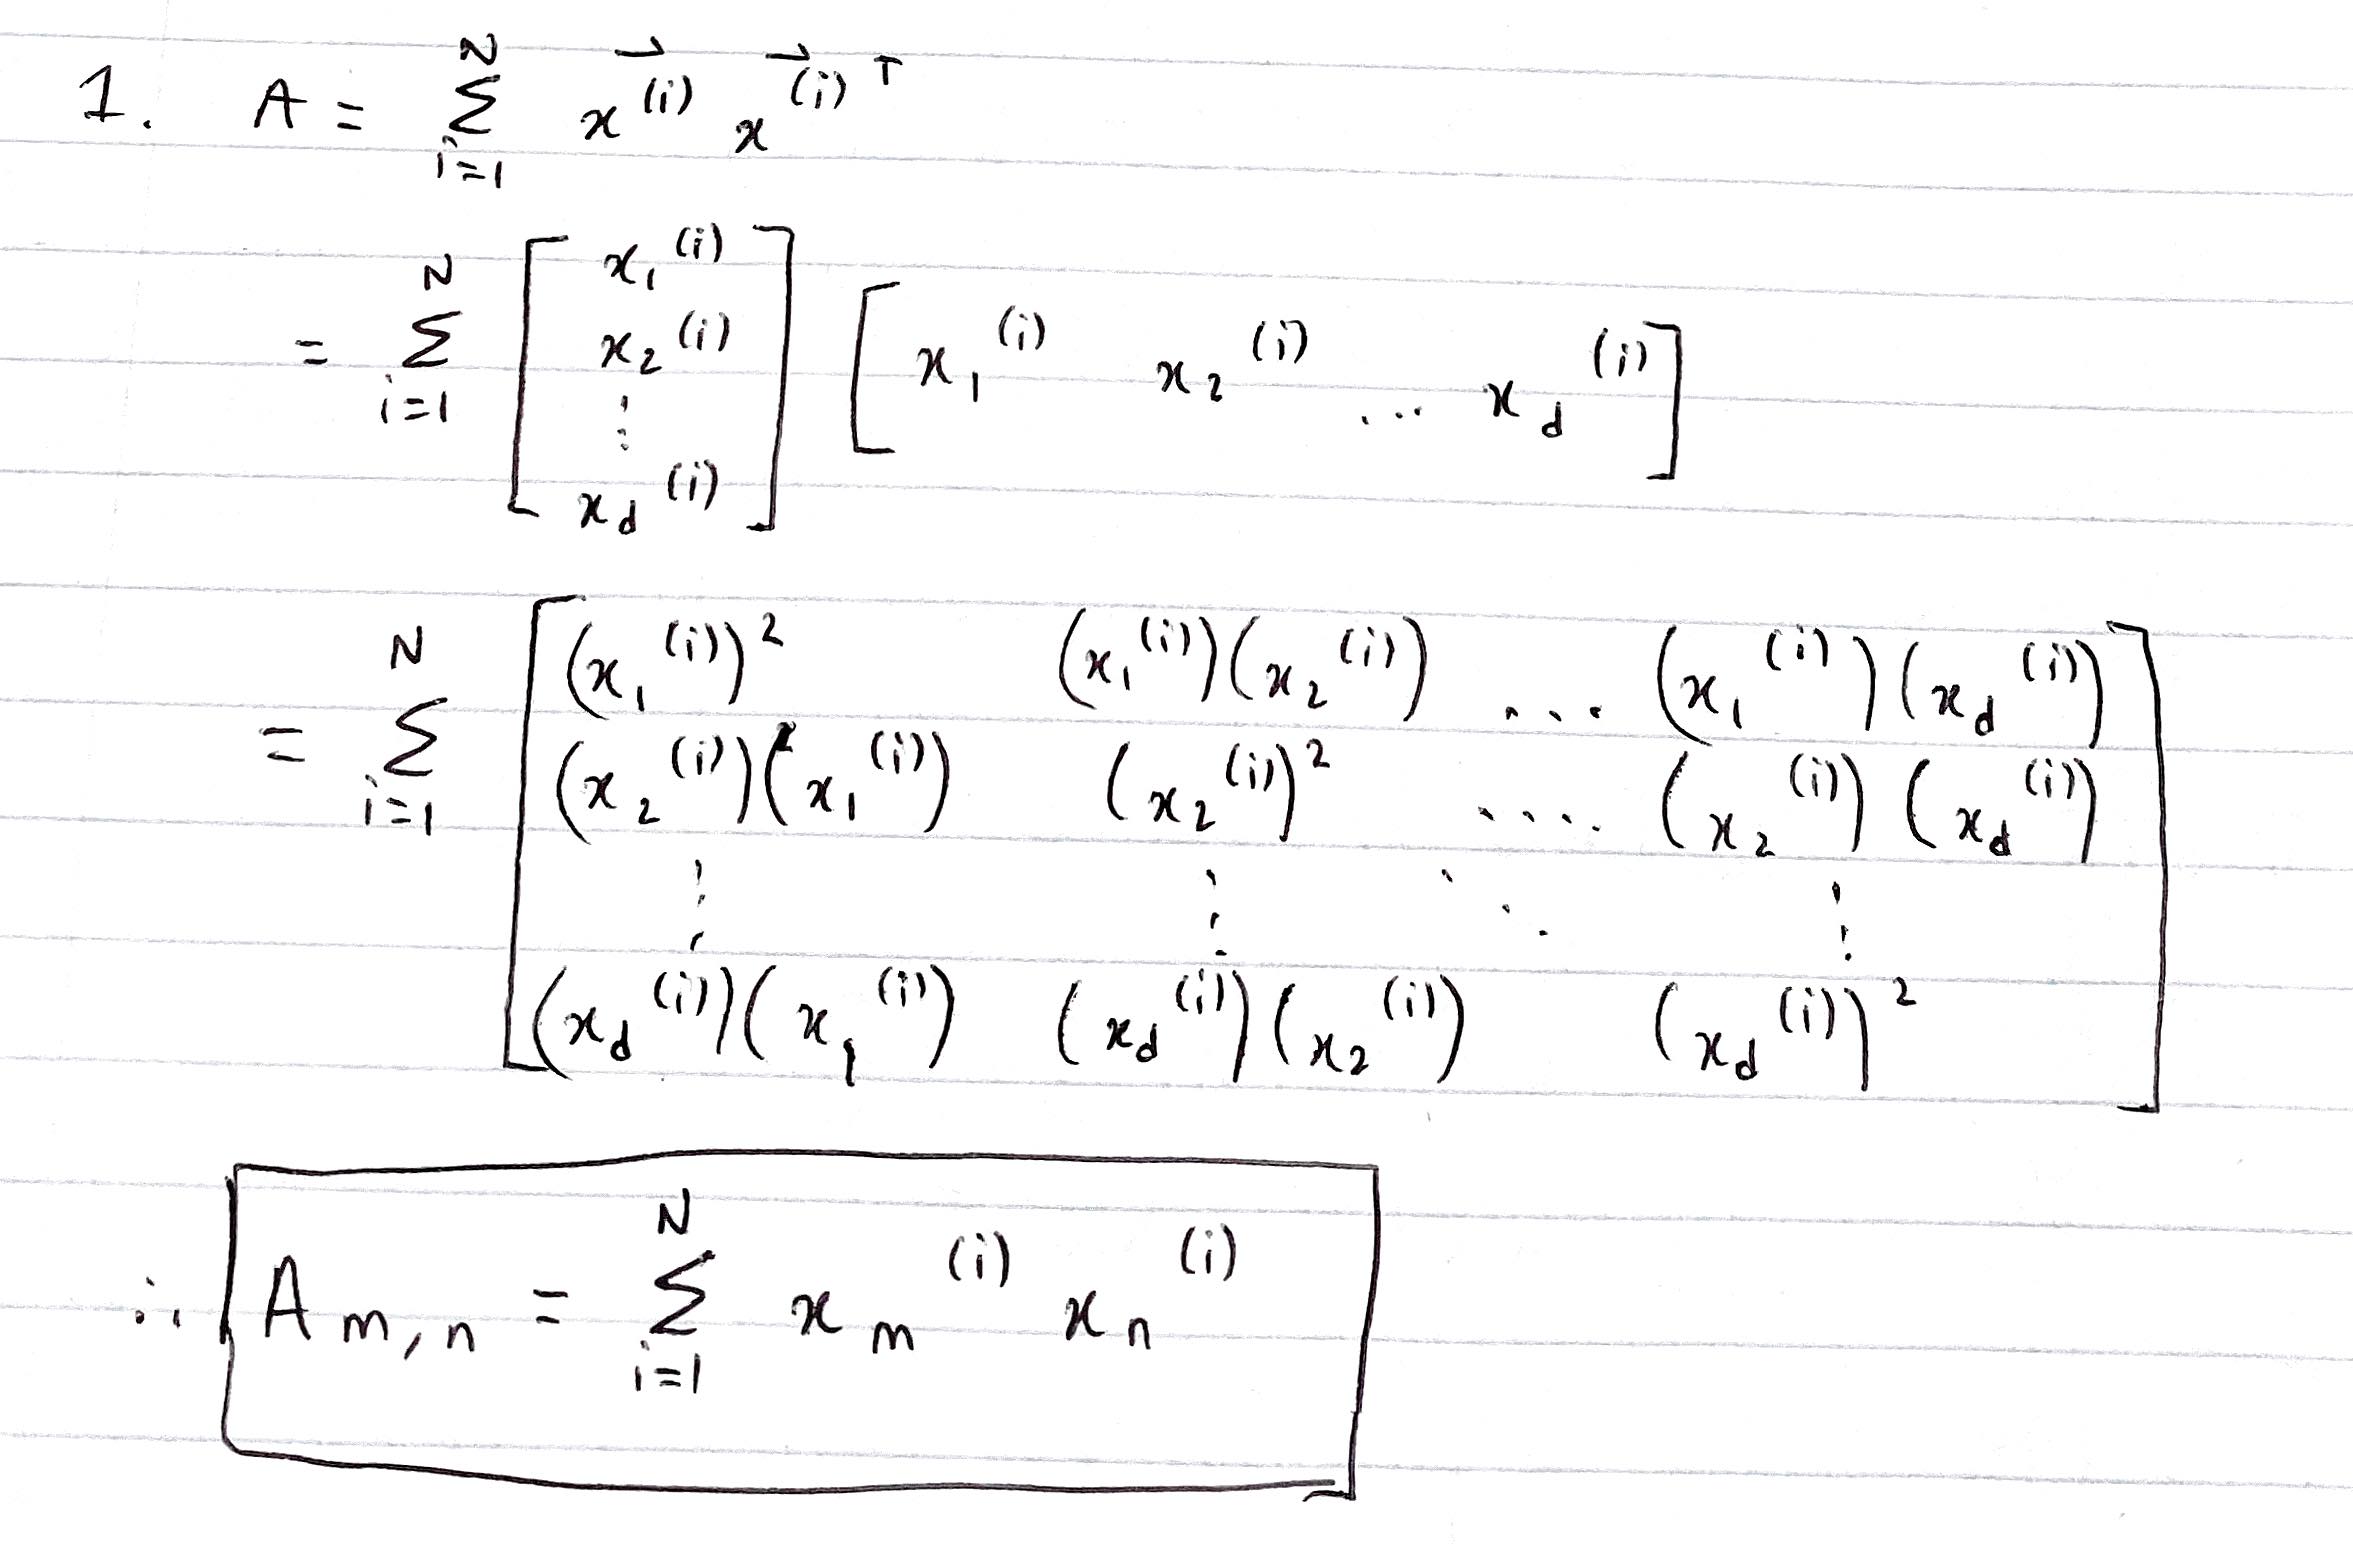 1. A = \sum_{i=1}^{N} \vec{x}^{(i)} \vec{x}^{(i)T}
= \sum_{i=1}^{N} \begin{bmatrix} x_1^{(i)} \\ x_2^{(i)} \\ \vdots \\ x_d^{(i)} \end{bmatrix} \begin{bmatrix} x_1^{(i)} & x_2^{(i)} & \dots & x_d^{(i)} \end{bmatrix}
= \sum_{i=1}^{N} \begin{bmatrix} (x_1^{(i)})^2 & (x_1^{(i)})(x_2^{(i)}) & \dots & (x_1^{(i)})(x_d^{(i)}) \\ (x_2^{(i)})(x_1^{(i)}) & (x_2^{(i)})^2 & \dots & (x_2^{(i)})(x_d^{(i)}) \\ \vdots & \vdots & \ddots & \vdots \\ (x_d^{(i)})(x_1^{(i)}) & (x_d^{(i)})(x_2^{(i)}) & & (x_d^{(i)})^2 \end{bmatrix}
∴ A_{m,n} = \sum_{i=1}^{N} x_m^{(i)} x_n^{(i)}